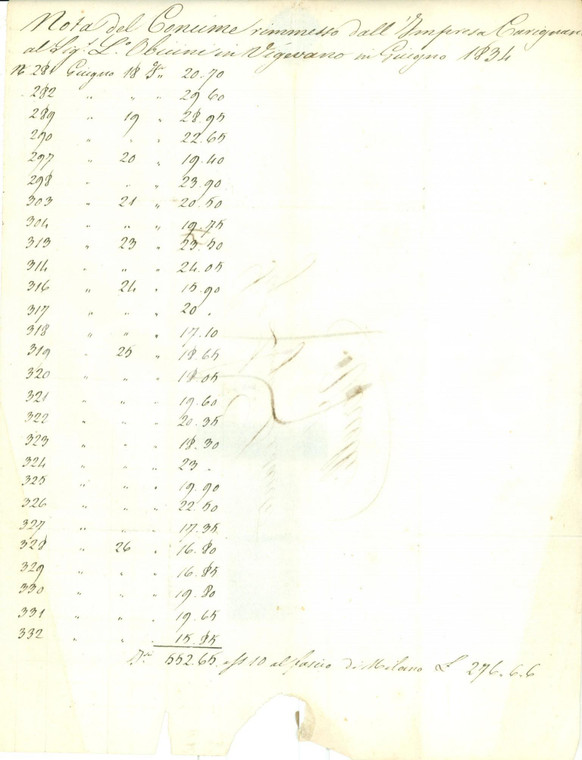 Nota del Concime rimmesso dall'Impresa Carignani
al Sigr. L. Obicini in Vigevano in Giugno 1834
N. 281 Giugno 18 Fii 20.70
282 " " " 29.60
289 " 19 " 28.95
290 " " " 22.65
297 " 20 " 19.40
298 " " " 23.90
303 " 21 " 20.50
304 " " " 19.75
313 " 23 " 23.50
314 " " " 24.05
316 " 24 " 15.90
317 " " " 20 .
318 " " " 17.10
319 " 25 " 18.65
320 " " " 18.05
321 " " " 19.60
322 " " " 20.35
323 " " " 18.30
324 " " " 23 .
325 " " " 19.90
326 " " " 22.50
327 " " " 17.35
328 " 26 " 16.80
329 " " " 16.85
330 " " " 19.80
331 " " " 19.65
332 " " " 15.85
552.65 a 10 al fascio di Milano L 276.6.6